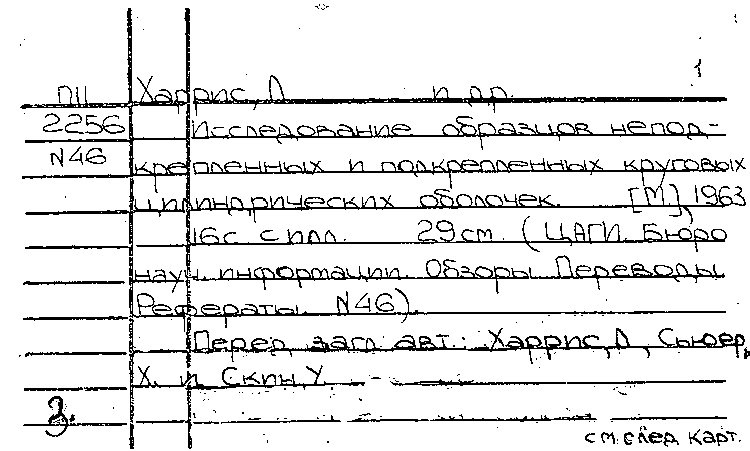 1
ПII Харрис, Л и др.
2256 Исследование образцов непод-
N46 крепленных и подкрепленных круговых
цилиндрических оболочек. [М] 1963
16с с илл. 29см. (ЦАГИ. Бюро
науч. информации. Обзоры. Переводы.
Рефераты. N46).
Перед загл. авт.: Харрис, Л., Сьюер,
Х. и Скин, У.
3.
см след карт.